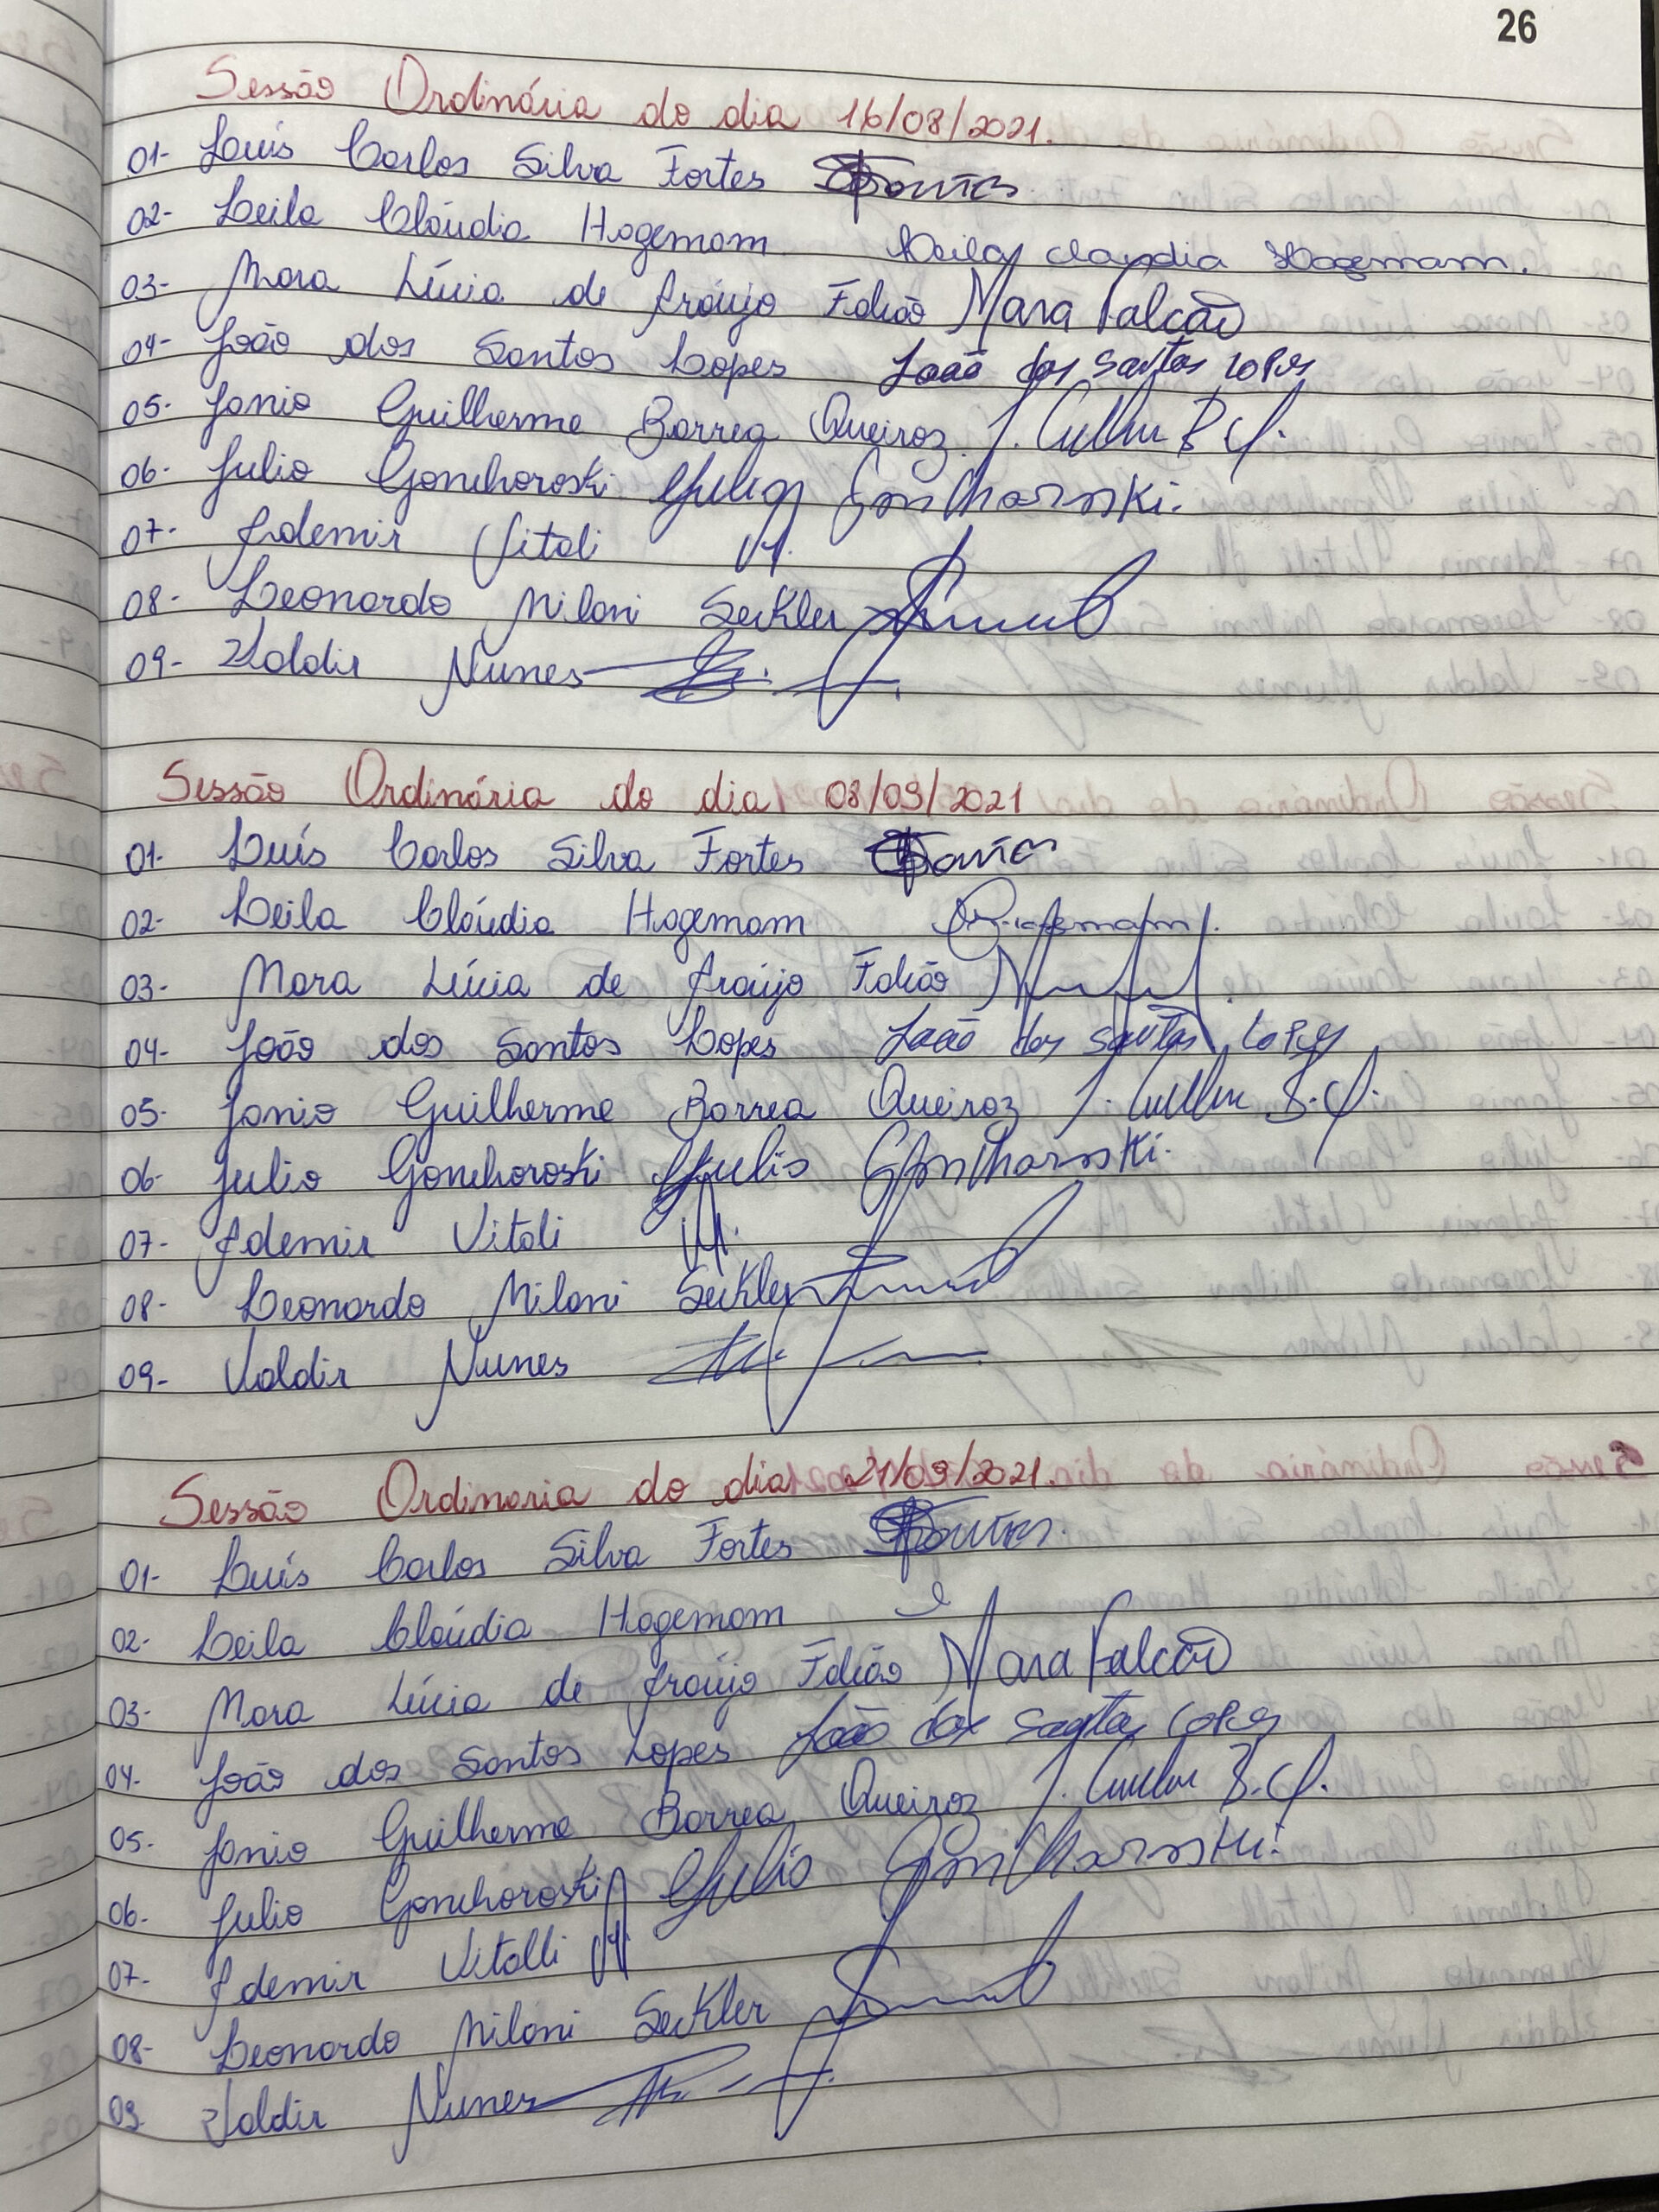 26
Sessão Ordinária do dia 16/08/2021.
01- Luís Carlos Silva Fortes
02- Leila Cláudia Hagemam Leila Claudia Hagemam.
03- Mara Lúcia de Araújo Falcão Mara Falcão
04- João dos Santos Lopes João dos Santos Lopes
05- Janio Guilherme Borrea Queiroz J. Guilher B Q.
06- Julio Gonchoroski Julio Gonchoroski.
07- Ademir Vitali
08- Leonardo Milani Seckler
09- Valdir Nunes
Sessão Ordinária do dia 08/09/2021
01- Luís Carlos Silva Fortes
02- Leila Cláudia Hagemam
03- Mara Lúcia de Araújo Falcão
04- João dos Santos Lopes João dos Santos Lopes
05- Janio Guilherme Borrea Queiroz J. Guilher B.Q.
06- Julio Gonchoroski Julio Gonchoroski.
07- Ademir Vitali
08- Leonardo Milani Seckler
09- Valdir Nunes
Sessão Ordinaria do dia 21/09/2021.
01- Luís Carlos Silva Fortes
02- Leila Cláudia Hagemam
03- Mara Lúcia de Araújo Falcão Mara Falcão
04- João dos Santos Lopes João dos Santos Lopes
05- Janio Guilherme Borrea Queiroz J. Guilher B.Q.
06- Julio Gonchoroski Julio Gonchoroski.
07- Ademir Vitalli
08- Leonardo Milani Seckler
09 Valdir Nunes